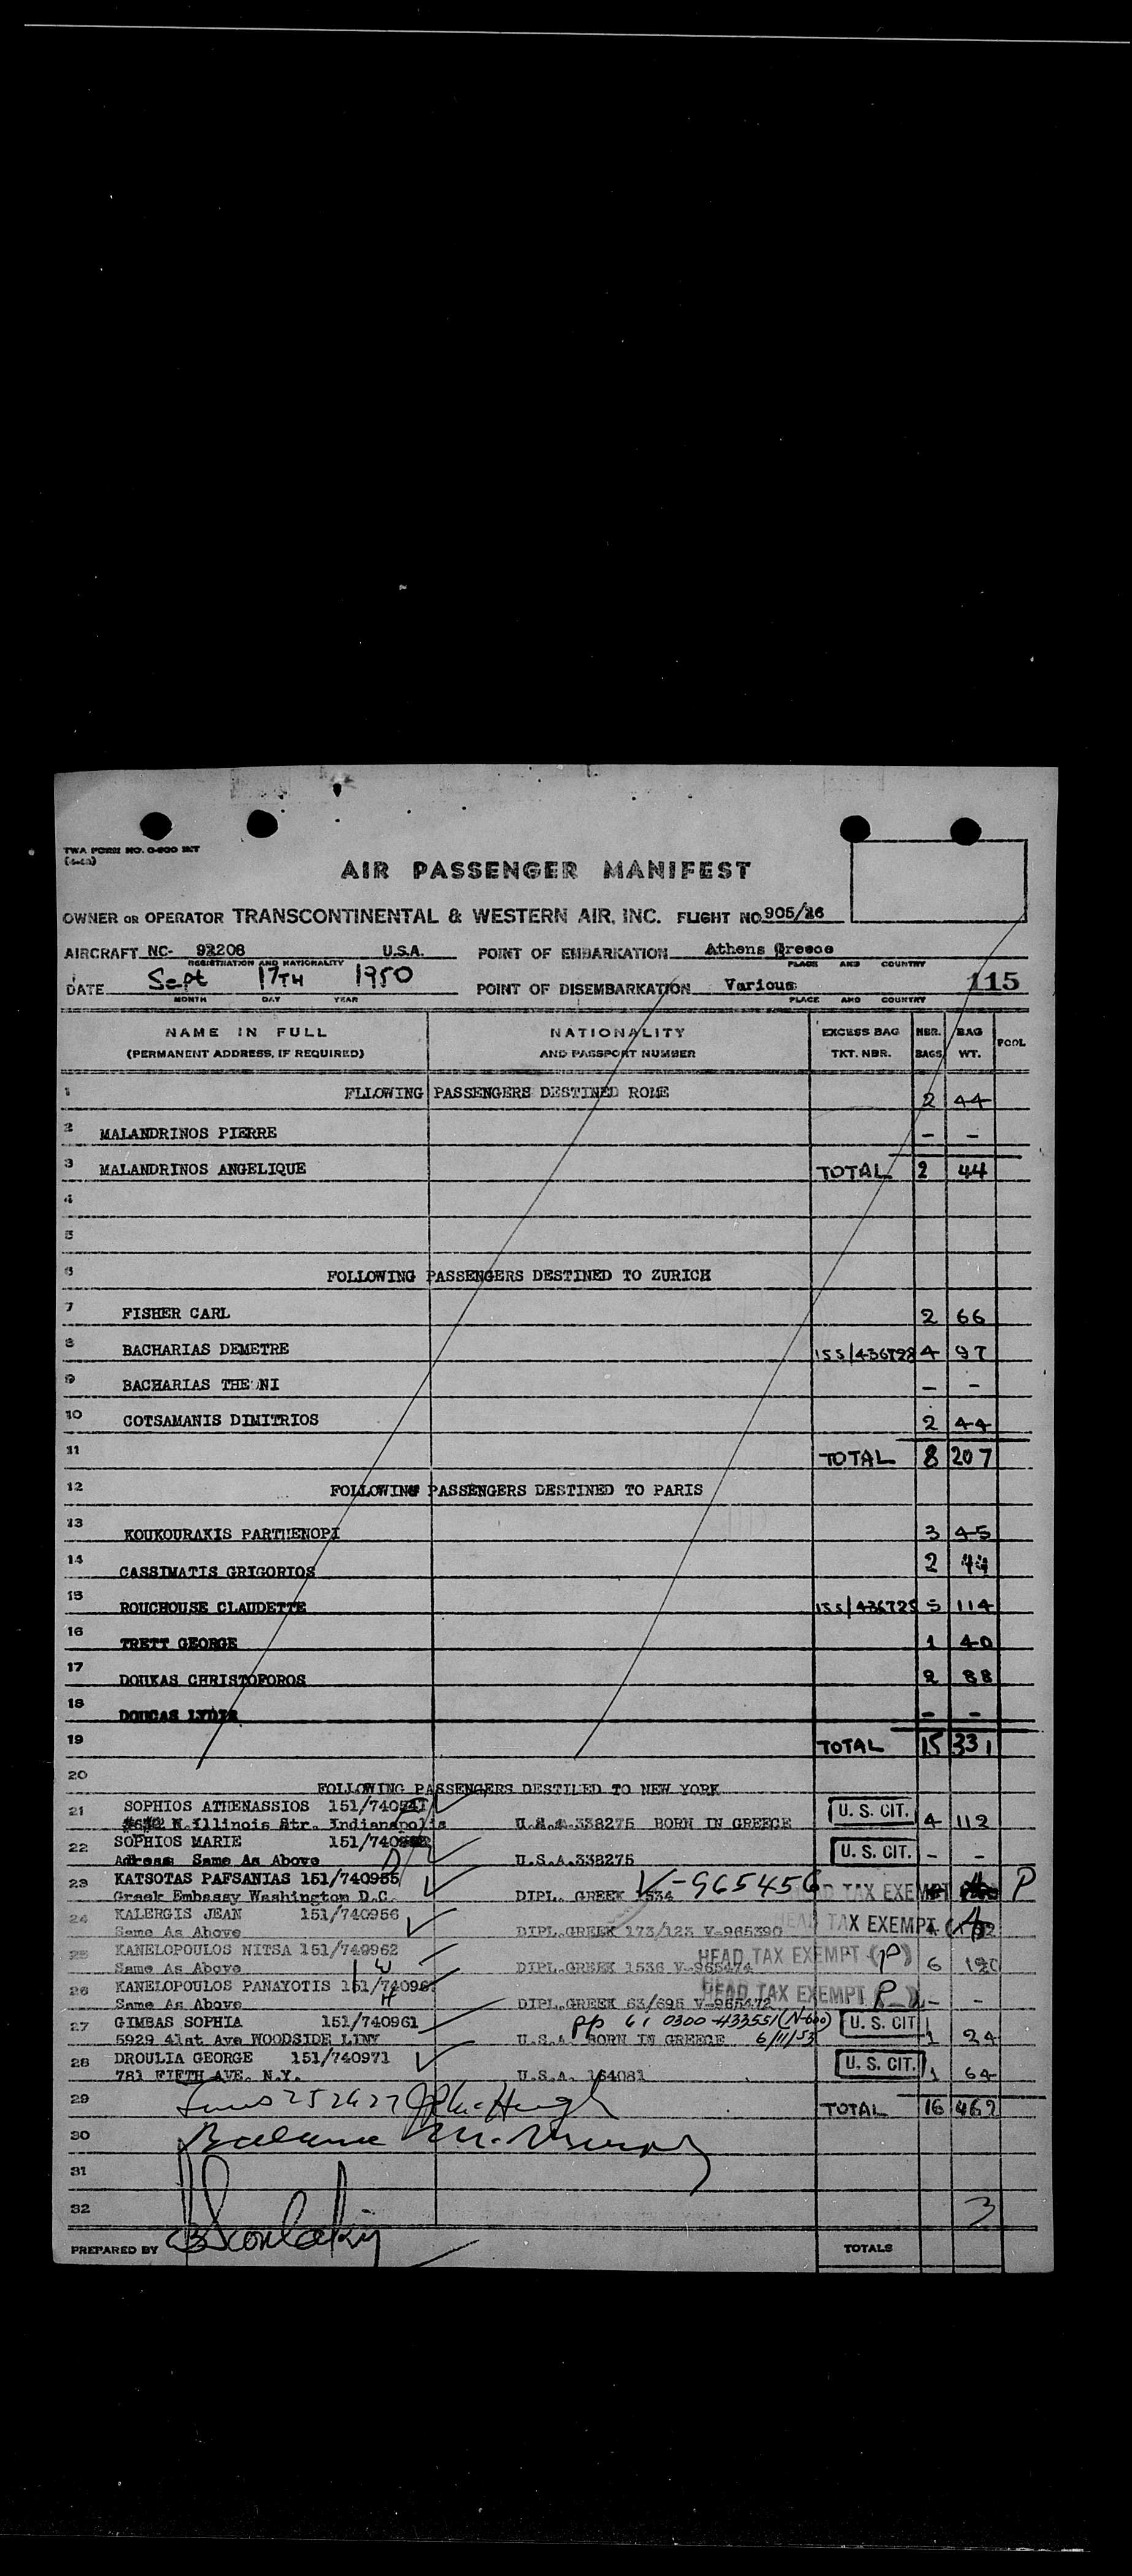 TWA FORM NO. 0-800 INT
AIR PASSENGER MANIFEST
OWNER OR OPERATOR TRANSCONTINENTAL & WESTERN AIR, INC. FLIGHT NO. 905/26
AIRCRAFT NC- 92208 U.S.A. POINT OF EMBARKATION Athens Greece
REGISTRATION AND NATIONALITY PLACE AND COUNTRY
DATE Sept 17TH 1950 POINT OF DISEMBARKATION Various 115
MONTH DAY YEAR PLACE AND COUNTRY
NAME IN FULL NATIONALITY EXCESS BAG NBR. BAG POOL
(PERMANENT ADDRESS, IF REQUIRED) AND PASSPORT NUMBER TKT. NBR. BAGS WT.
1 FLLOWING PASSENGERS DESTINED ROME 2 44
2 MALANDRINOS PIERRE - -
3 MALANDRINOS ANGELIQUE TOTAL 2 44
4
5
6 FOLLOWING PASSENGERS DESTINED TO ZURICH
7 FISHER CARL 2 66
8 BACHARIAS DEMETRE 4 97
9 BACHARIAS - -
10 COTSAMANIS DIMITRIOS 2 44
11 TOTAL 8 207
12 FOLLOWING PASSENGERS DESTINED TO PARIS
13 KOUKOURAKIS PARTHENOPI 3 45
14 CASSIMATIS GRIGORIOS 2 44
15 ROUCHOUSE CLAUDETTE 5 114
16 TRETT GEORGE 1 40
17 DOUKAS CHRISTOFOROS 2 88
18 DOUCAS - -
19 TOTAL 15 331
20 FOLLOWING PASSENGERS DESTINED TO NEW YORK
21 SOPHIOS ATHENASSIOS U. S. CIT. 4 112
N.Illinois Str. Indianapolis U.S.A.338275 BORN IN GREECE
22 SOPHIOS MARIE U. S. CIT. - -
Adress Same As Above U.S.A.338275
23 KATSOTAS PAFSANIAS 151/740955 V-965456 TAX EXEMPT P
Greek Embassy Washington D.C. DIPL. GREEK 1534
24 KALERGIS JEAN 151/740956 HEAD TAX EXEMPT
Same As Above DIPL.GREEK 173/123 V-965390
25 KANELOPOULOS NITSA 151/740962 HEAD TAX EXEMPT (P) 6
Same As Above W DIPL.GREEK 1536 V-965474
26 KANELOPOULOS PANAYOTIS HEAD TAX EXEMPT P - -
Same As Above H DIPL.GREEK 63/695 V-965472
27 GIMBAS SOPHIA 151/740961 U. S. CIT 1 24
5929 41st Ave WOODSIDE LINY U.S.A. BORN IN GREECE 6/11/53
28 DROULIA GEORGE 151/740971 U. S. CIT. 1 64
781 FIFTH AVE. N.Y. U.S.A. 164081
29 TOTAL 16 462
30
31
32 3
PREPARED BY TOTALS